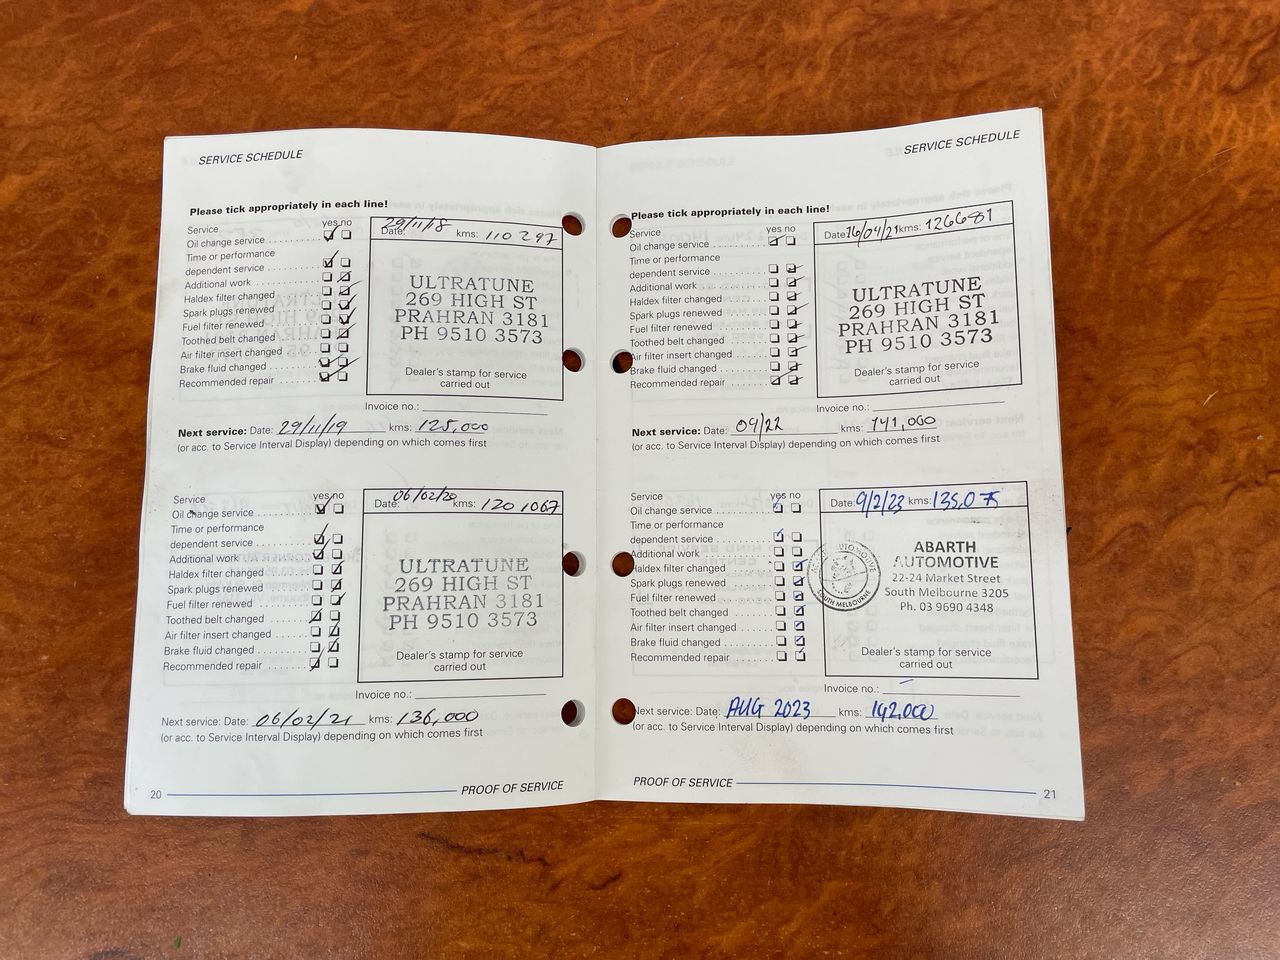 SERVICE SCHEDULE
Please tick appropriately in each line!
Service yes no
Oil change service
Time or performance
dependent service
Additional work
Haldex filter changed
Spark plugs renewed
Fuel filter renewed
Toothed belt changed
Air filter insert changed
Brake fluid changed
Recommended repair
Date: 29/11/18 kms: 110 297
ULTRATUNE
269 HIGH ST
PRAHRAN 3181
PH 9510 3573
Dealer's stamp for service
carried out
Invoice no.:
Next service: Date: 29/11/19 kms: 125,000
(or acc. to Service Interval Display) depending on which comes first
Service yes no
Oil change service
Time or performance
dependent service
Additional work
Haldex filter changed
Spark plugs renewed
Fuel filter renewed
Toothed belt changed
Air filter insert changed
Brake fluid changed
Recommended repair
Date: 06/02/20 kms: 120 1067
ULTRATUNE
269 HIGH ST
PRAHRAN 3181
PH 9510 3573
Dealer's stamp for service
carried out
Invoice no.:
Next service: Date: 06/02/21 kms: 136,000
(or acc. to Service Interval Display) depending on which comes first
20 PROOF OF SERVICE
SERVICE SCHEDULE
Please tick appropriately in each line!
Service yes no
Oil change service
Time or performance
dependent service
Additional work
Haldex filter changed
Spark plugs renewed
Fuel filter renewed
Toothed belt changed
Air filter insert changed
Brake fluid changed
Recommended repair
Date: 16/04/21 kms: 126681
ULTRATUNE
269 HIGH ST
PRAHRAN 3181
PH 9510 3573
Dealer's stamp for service
carried out
Invoice no.:
Next service: Date: 04/22 kms: 141,000
(or acc. to Service Interval Display) depending on which comes first
Service yes no
Oil change service
Time or performance
dependent service
Additional work
Haldex filter changed
Spark plugs renewed
Fuel filter renewed
Toothed belt changed
Air filter insert changed
Brake fluid changed
Recommended repair
Date: 9/2/23 kms: 135,075
AUTOMOTIVE
SOUTH MELBOURNE
ABARTH
AUTOMOTIVE
22-24 Market Street
South Melbourne 3205
Ph. 03 9690 4348
Dealer's stamp for service
carried out
Invoice no.:
Next service: Date: AUG 2023 kms: 142,000
(or acc. to Service Interval Display) depending on which comes first
PROOF OF SERVICE 21